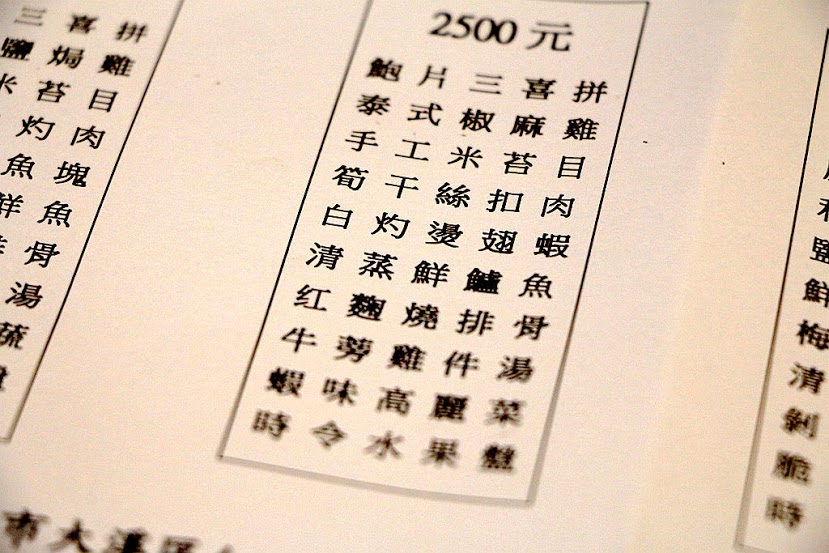 三喜拼
鹽焗雞
米苔目
灼肉
魚塊
鮮魚
骨
湯
2500元
鮑片三喜拼
泰式椒麻雞
手工米苔目
筍干絲扣肉
白灼燙翅蝦
清蒸鮮鱸魚
红麴燒排骨
牛蒡雞件湯
蝦味高麗菜
時令水果盤
鹽
鮮
梅
清
剝
脆
時
市大溪區